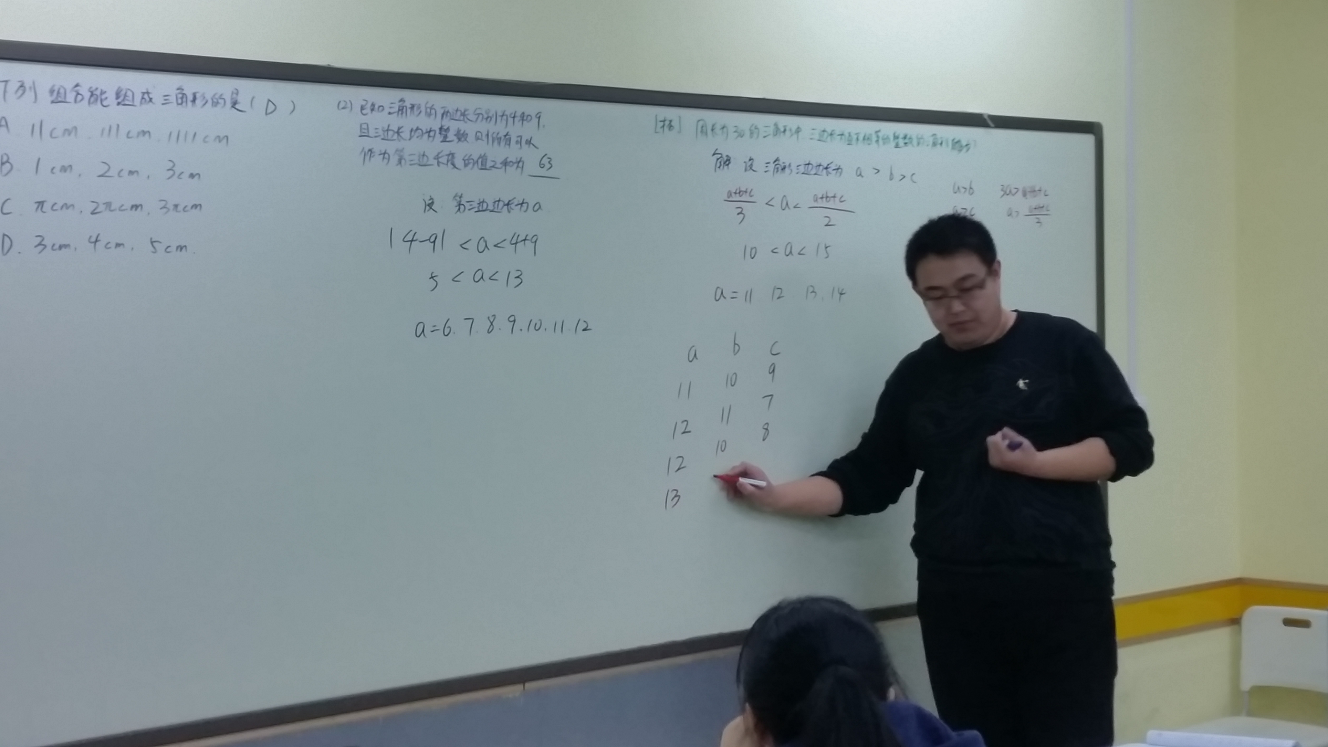 下列组合能组成三角形的是(D)
A. 11cm、111cm、1111cm
B. 1cm, 2cm, 3cm
C. πcm, 2πcm, 3πcm
D. 3cm, 4cm, 5cm.
(2) 已知三角形的两边长分别为4和9,
且三边长均为整数,则所有可以
作为第三边长度的值之和为 63
设 第三边边长为a.
|4-9| < a < 4+9
5 < a < 13
a=6.7.8.9.10.11.12
周长为30的三角形中,三边长为互不相等的整数的三角形
解: 设三角形三边边长为 a > b > c
a+b+c/3 < a < a+b+c/2
10 < a < 15
a=11 12 13.14
a b c
11 10 9
12 11 7
12 10 8
13
a>b 3a>a+b+c
a>c a>a+b+c/3